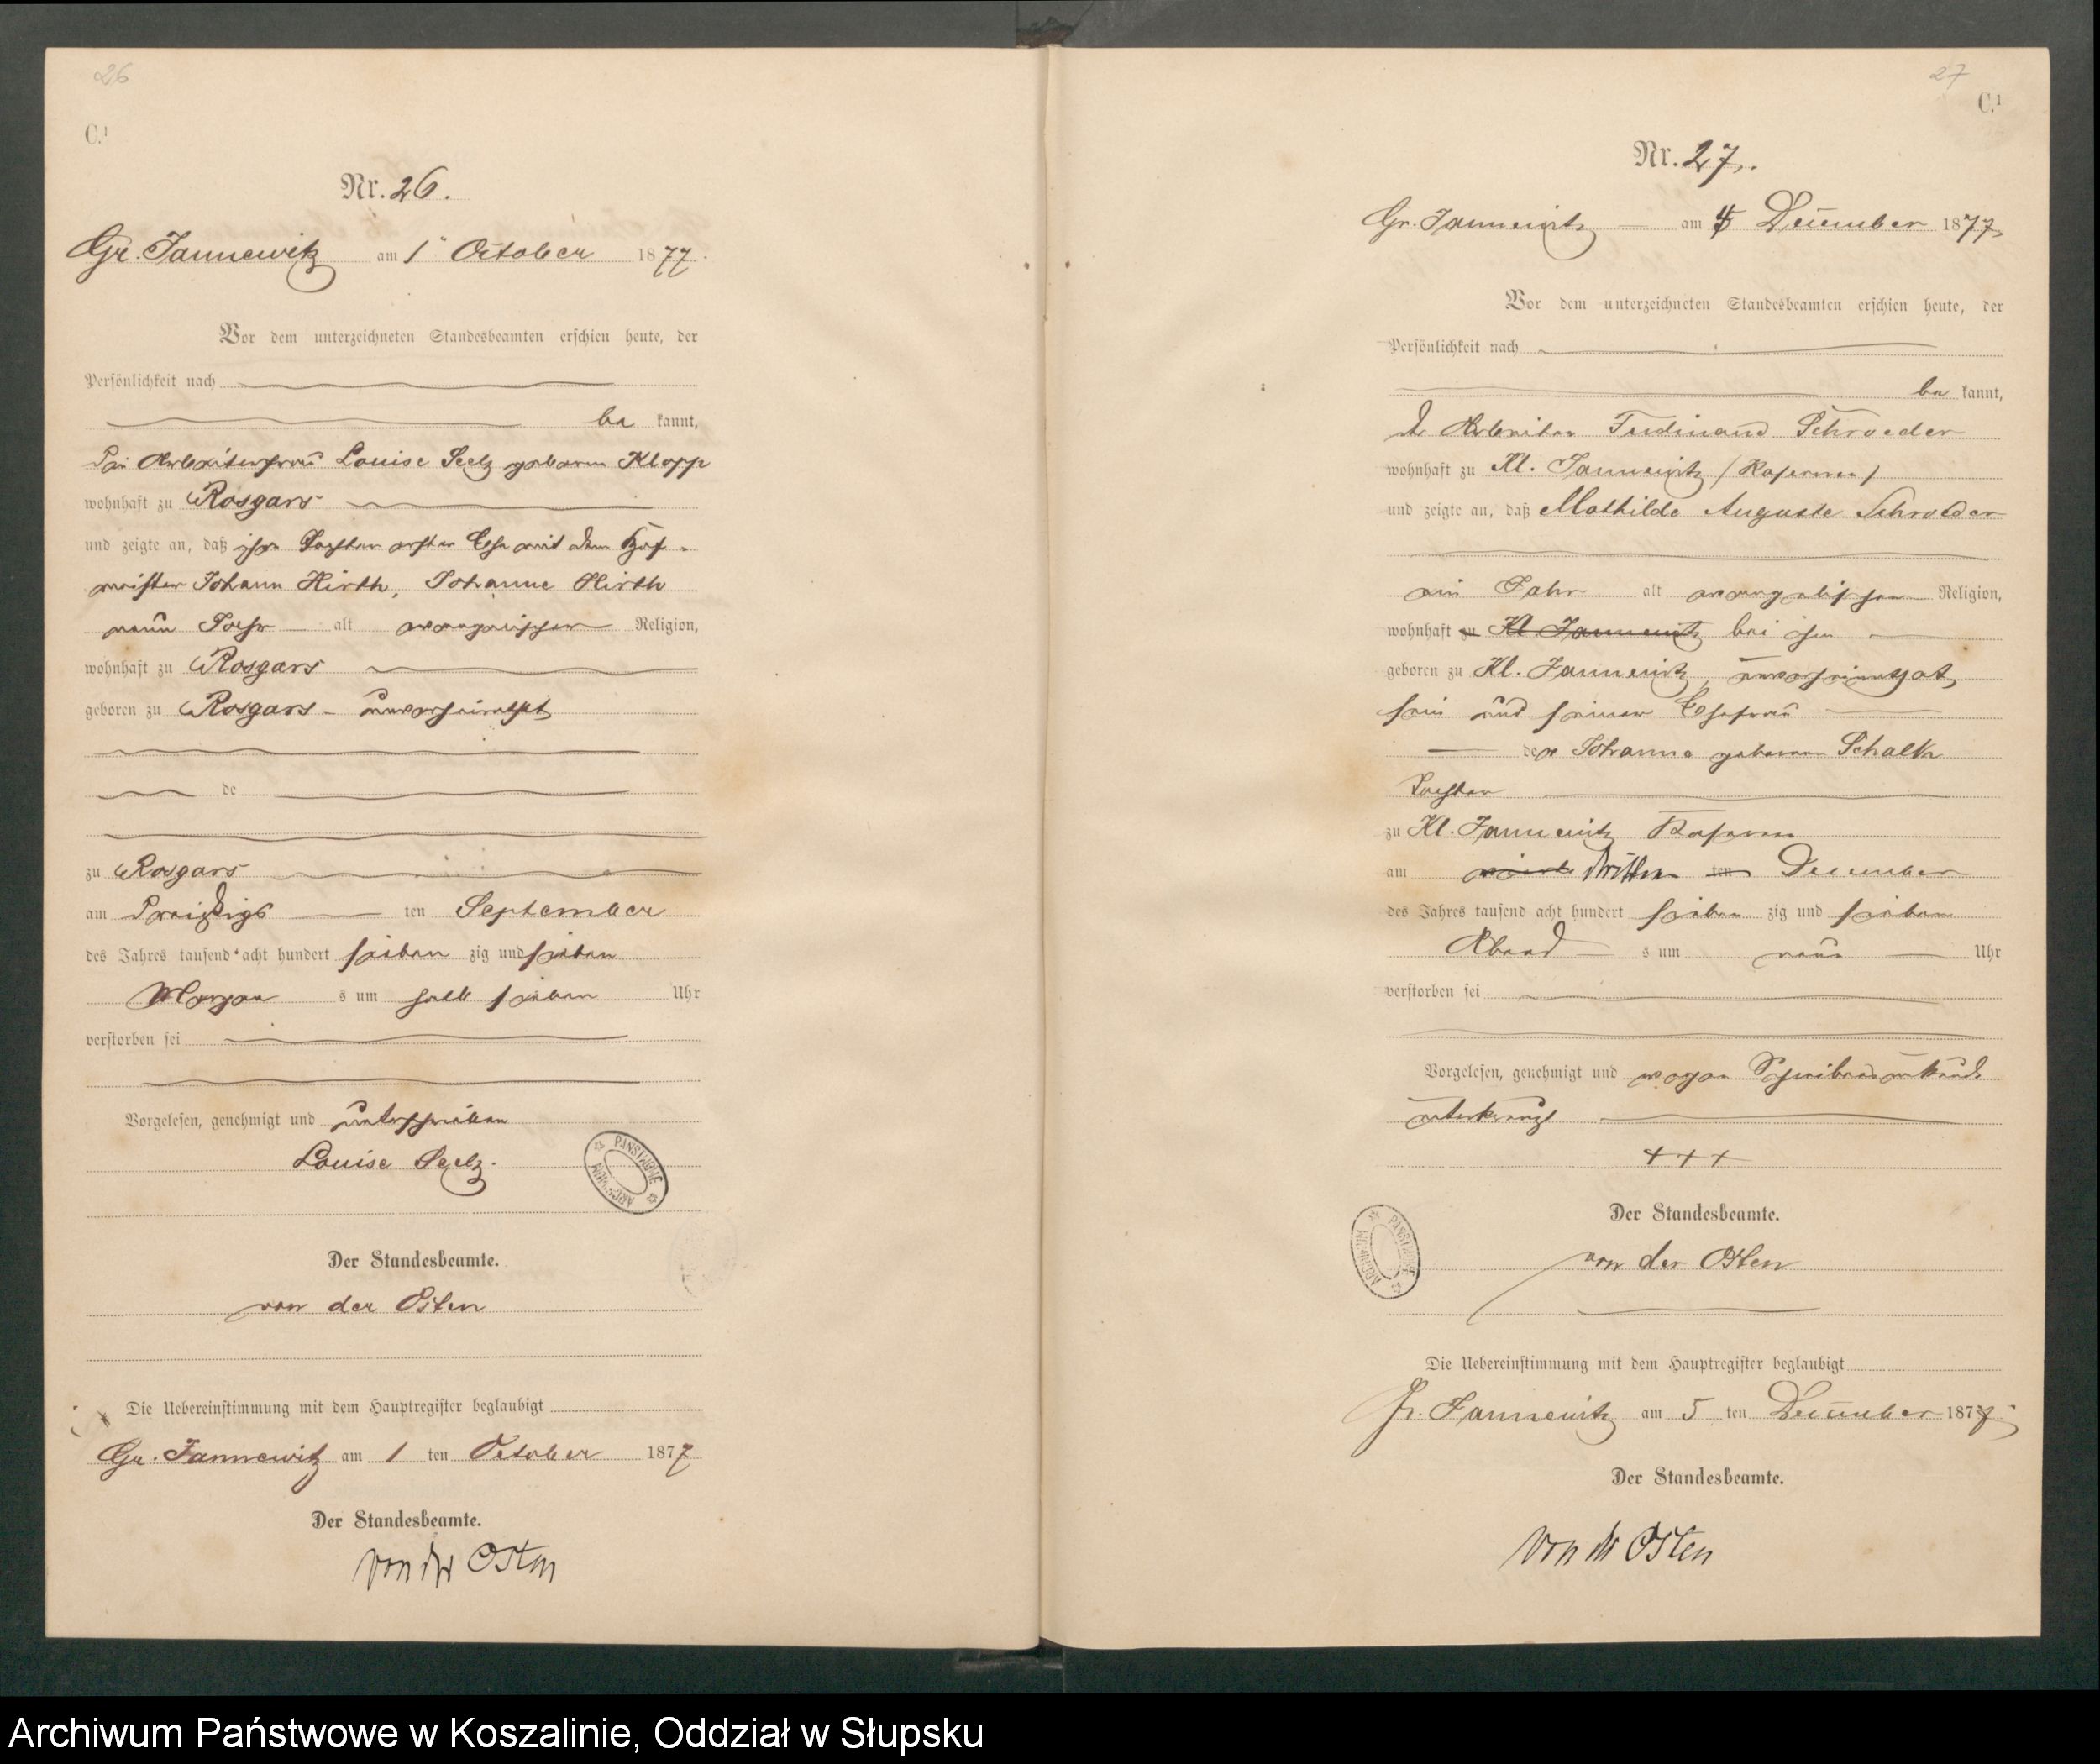 26
C.¹
Nr. 26.
Gr. Jannewitz am 1ⁿ October 1877.
Vor dem unterzeichneten Standesbeamten erschien heute, der
Persönlichkeit nach
be kannt,
Die Arbeiterfrau Louise Seelz geborne Klopp
wohnhaft zu Rosgars
und zeigte an, daß ihre Tochter erster Ehe mit dem Hof-
meister Johann Hirth, Johanne Hirth
neun Jahr alt evangelischer Religion,
wohnhaft zu Rosgars
geboren zu Rosgars - unverheirathet
de
zu Rosgars
am Dreißigs ten September
des Jahres tausend acht hundert sieben zig und sieben
Morgen s um halb sieben Uhr
verstorben sei
Vorgelesen, genehmigt und unterschrieben
Louise Seelz.
ARCHIWUM PAŃSTWOWE
Der Standesbeamte.
von der Osten
Die Uebereinstimmung mit dem Hauptregister beglaubigt
Gr. Jannewitz am 1 ten October 1877
Der Standesbeamte.
von der Osten
27
C.¹
Nr. 27.
Gr. Jannewitz am 4 December 1877
Vor dem unterzeichneten Standesbeamten erschien heute, der
Persönlichkeit nach
be kannt,
der Arbeiter Ferdinand Schroeder
wohnhaft zu Kl. Jannewitz /Kasernen/
und zeigte an, daß Mathilde Auguste Schroeder
ein Jahr alt evangelischer Religion,
wohnhaft zu Kl. Jannewitz bei ihm
geboren zu Kl. Jannewitz, unverheirathet,
sein und seiner Ehefrau
der Johanna geborenen Schalk
Tochter
zu Kl. Jannewitz Kasernen
am vierte dritten ten December
des Jahres tausend acht hundert sieben zig und sieben
Abend s um neun Uhr
verstorben sei
Vorgelesen, genehmigt und wegen Schreibensunkunde
unterkreuzt
+++
ARCHIWUM PAŃSTWOWE
Der Standesbeamte.
von der Osten
Die Uebereinstimmung mit dem Hauptregister beglaubigt
Gr. Jannewitz am 5 ten December 1877
Der Standesbeamte.
von der Osten
Archiwum Państwowe w Koszalinie, Oddział w Słupsku